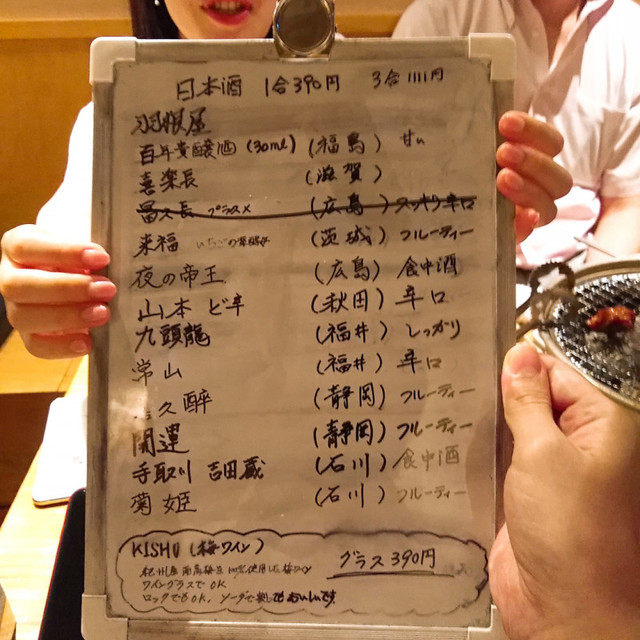 日本酒 1合390円 3合1111円
羽根屋
百年貴醸酒(30ml) (福島) 甘い
喜楽長 (滋賀)
久長 プラスメ (広島) スッキリ辛口
来福 いちごの (茨城) フルーティー
夜の帝王 (広島) 食中酒
山本 ど辛 (秋田) 辛口
九頭龍 (福井) しっかり
常山 (福井) 辛口
久酔 (静岡) フルーティー
開運 (静岡) フルーティー
手取川 吉田蔵 (石川) 食中酒
菊姫 (石川) フルーティー
KISHU(梅ワイン) グラス390円
紀州産南高梅を100%使用した梅ワイン
ワイングラスでOK
ロックでもOK、ソーダで割してもおいしいです。